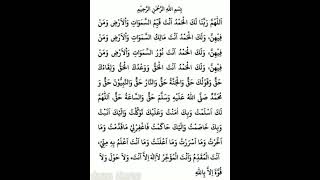 بِسْمِ اللهِ الرَّحْمٰنِ الرَّحِيْمِ
اَللّٰهُمَّ رَبَّنَا لَكَ الْحَمْدُ أَنْتَ قَيِّمُ السَّمَوَاتِ وَالْأَرْضِ وَمَنْ
فِيْهِنَّ، وَلَكَ الْحَمْدُ أَنْتَ مَالِكُ السَّمَوَاتِ وَالْأَرْضِ وَمَنْ
فِيْهِنَّ، وَلَكَ الْحَمْدُ أَنْتَ نُوْرُ السَّمَوَاتِ وَالْأَرْضِ وَمَنْ
فِيْهِنَّ، وَلَكَ الْحَمْدُ أَنْتَ الْحَقُّ وَوَعْدُكَ الْحَقُّ وَلِقَاءُكَ
حَقٌّ وَقَوْلُكَ حَقٌّ وَالْجَنَّةُ حَقٌّ وَالنَّارُ حَقٌّ وَالنَّبِيُّوْنَ حَقٌّ وَ
مُحَمَّدٌ صَلَّى اللهُ عَلَيْهِ وَسَلَّمَ حَقٌّ وَالسَّاعَةُ حَقٌّ. اَللّٰهُمَّ
لَكَ أَسْلَمْتُ وَبِكَ آمَنْتُ وَعَلَيْكَ تَوَكَّلْتُ وَإِلَيْكَ أَنَبْتُ
وَبِكَ خَاصَمْتُ وَإِلَيْكَ حَاكَمْتُ فَاغْفِرْلِيْ مَاقَدَّمْتُ وَمَا
أَخَّرْتُ وَمَا أَسْرَرْتُ وَمَا أَعْلَنْتُ وَمَا أَنْتَ أَعْلَمُ بِهِ مِنِّيْ،
أَنْتَ الْمُقَدِّمُ وَأَنْتَ الْمُؤَخِّرُ لَاإِلٰهَ إِلَّا أَنْتَ، وَلَا حَوْلَ وَلَا
قُوَّةَ إِلَّا بِاللهِ